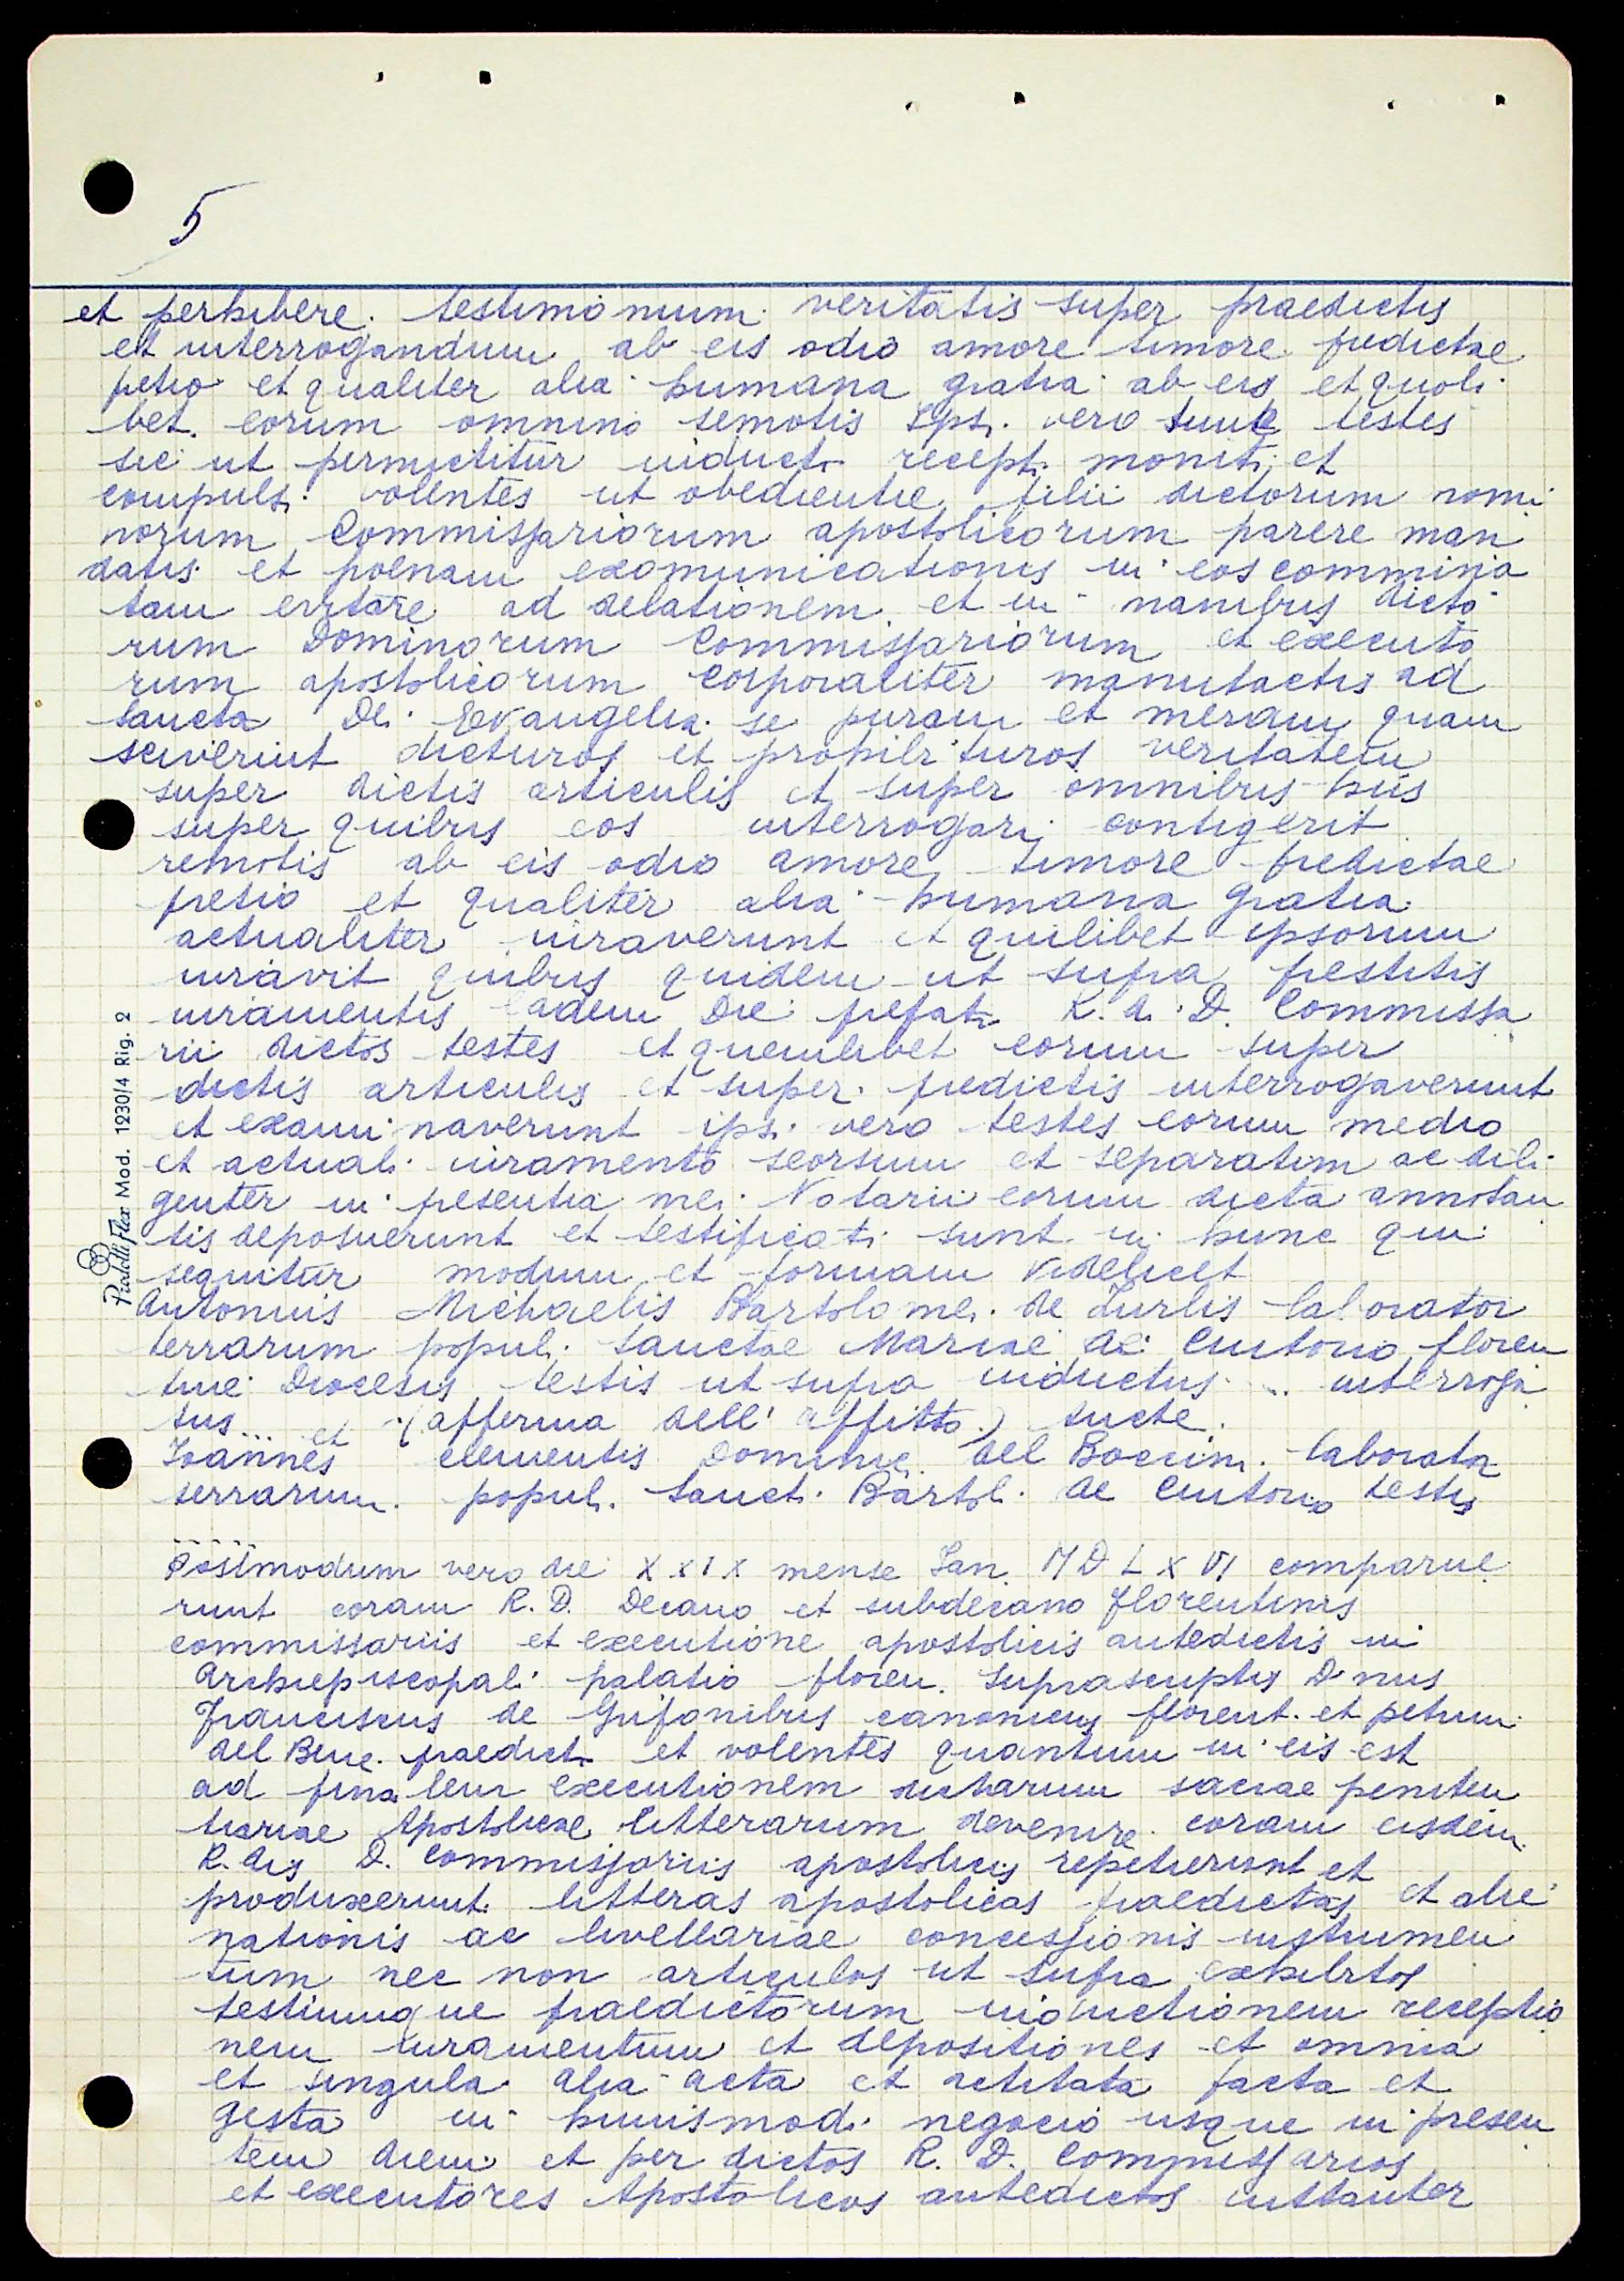 5
et perhibere. testimonium. veritatis super praedictis
et interrogandum ab eis odio amore timore predictae
petio et qualiter alia humana gratia ab eis et quoli
bet. eorum omnino semotis Ipsi. vero tunc testes
sic ut permictitur inducti recepti moniti et
compulsi volentes ut obedientie filii dictorum nomi
norum Commissariorum apostolicorum parere man
datis et poenam excomunicationis in eos commina
tam evitare ad delationem et in manibus dicto
rum Dominorum Commissariorum et executo
rum apostolicorum corporaliter manutactis ad
sancta Dei Evangelia se puram et meram quam
sciverint dicturos et prohibituros veritatem
super dictis articulis et super omnibus hiis
super quibus eos interrogari contigerit
remotis ab eis odio amore timore predictae
pretio et qualiter alia humana gratia
actualiter iuraverunt et quilibet ipsorum
iuravit quibus quidem ut supra prestitis
iuramentis eadem die prefati R. d. D. Commissa
rii dictos testes et quemlibet eorum super
dictis articulis et super. predictis interrogaverunt
et examinaverunt ipsi vero testes eorum medio
et actuali iuramento seorsum et separatim ac dili
genter in presentia mei Notarii eorum dicta annotan
tis deposuerunt et testificati sunt in hunc qui
sequitur modum et formam videlicet
Antonius Michaelis Bartolomei de Zurlis laborator
terrarum populi Sanctae Mariae de Cintoio floren
tine Diocesis testis ut supra inductus ... interroga
tus... et (afferma dell' affitto) sucte.
Ioannes clementis Dominici del Boccini laborator
terrarum. populi. Sancti Bartol. de Cintoio testis
Postmodum vero die XXIX mense Ian. MDLXVI comparue
runt coram R. D. Decano et subdecano florentinis
commissariis et executione apostolicis antedictis in
Archiepiscopali palatio floren. suprascriptis D nus
Franciscus de Grifonibus canonicus florent. et petrus
del Bene. praedicti et volentes quantum in eis est
ad finalem executionem dictarum sacrae peniten
tiariae Apostolicae litterarum devenire coram eisdem
R. dis D. Commissariis apostolicis repetierunt et
produxerunt litteras apostolicas praedictas et alie
nationis ac livellariae concessionis instrumen
tum nec non articulos ut supra exhibitos
testiumque praedictorum inductionem receptio
nem iuramentum et depositiones et omnia
et singula alia acta et actitata facta et
gesta in huiusmodi negocio usque in presen
tem diem et per dictos R. D. Commissarios
et executores Apostolicos antedictos instanter
Pictelli Flex Mod. 1230/4 Rig. 2